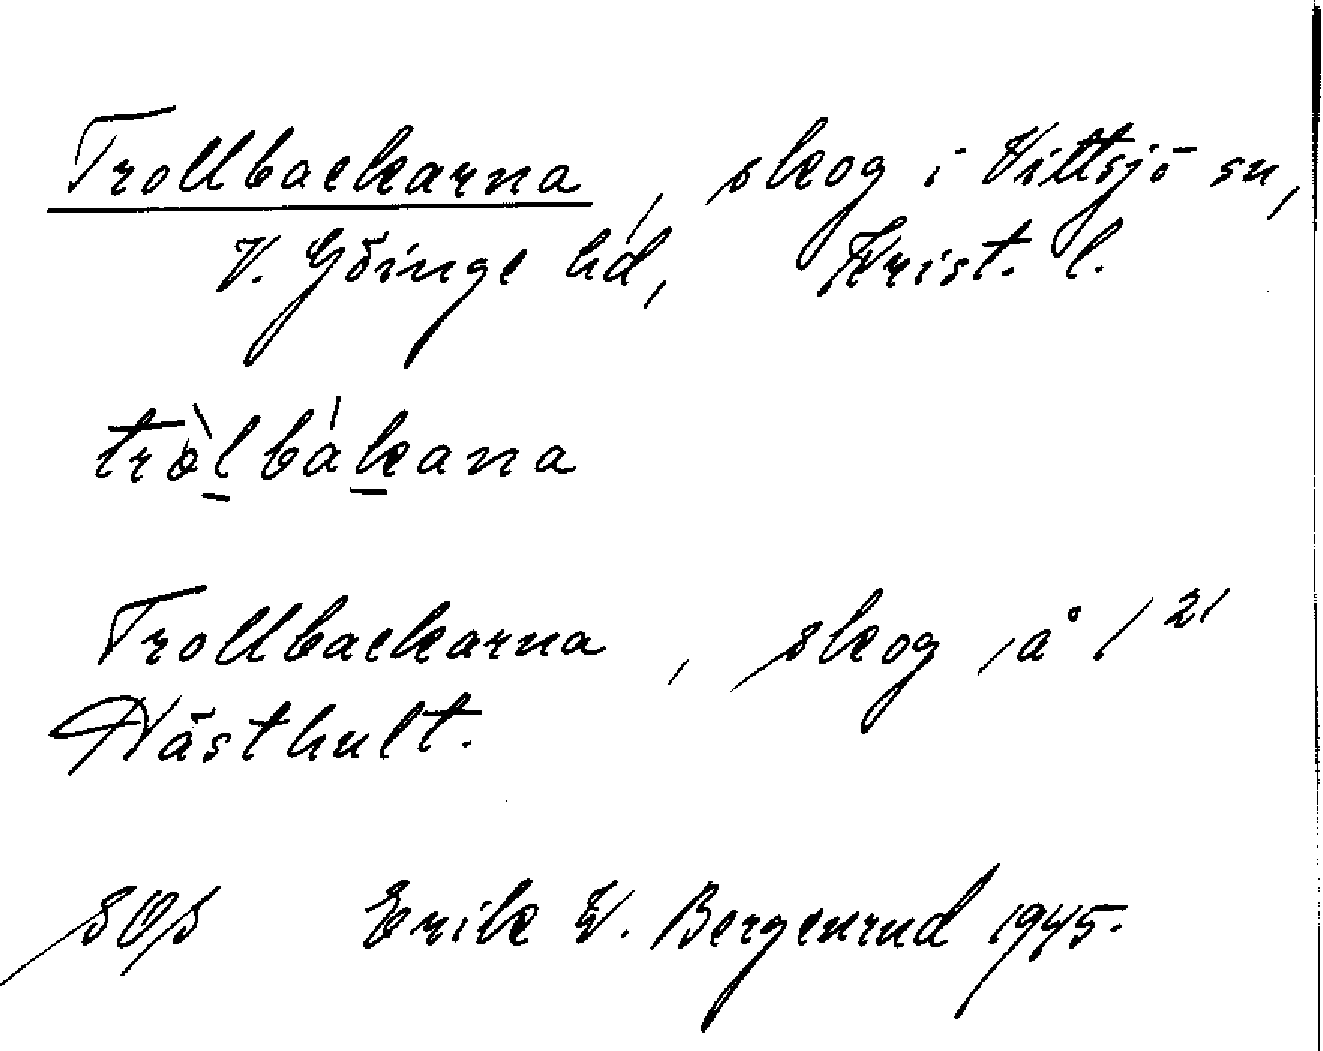 Trollbackarna, skog i Vittsjö sn,
V. Göinge hd, Krist. l.
tròlbákana
Trollbackarna, skog å 1²¹
Hästhult.
SOS Erik W. Bergenrud 1945.